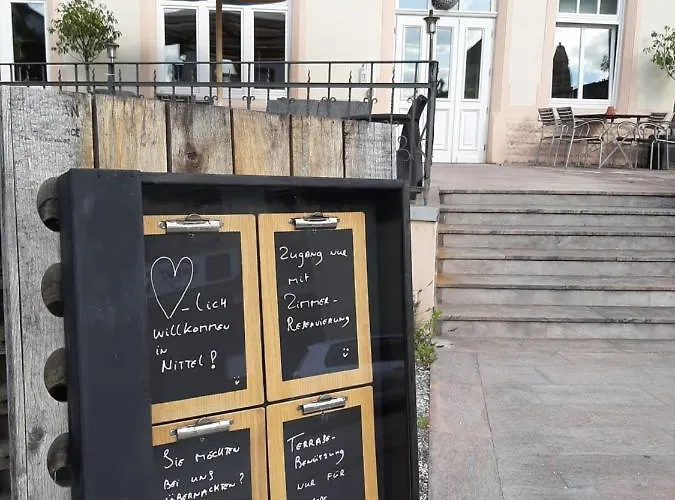 ♡-lich
willkommen
in
Nittel!
Zugang nur
mit
Zimmer-
Reservierung
Sie mechten
bei uns
übernachten?
Terraße-
Benutzung
nur für